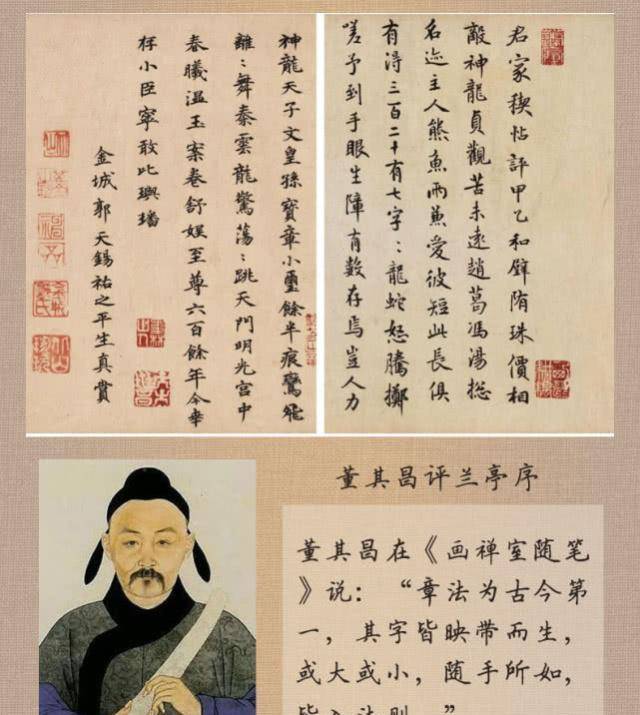 名家稧帖評甲乙和璧隋珠價相
敵神龍貞觀苦未遠趙葛馮湯揔
名迹主人熊魚兩兼愛彼短此長俱
有淂三百二十有七字〻龍蛇怒騰擲
嗟予到手眼生障有數存焉豈人力
神龍天子文皇孫寶章小璽餘半痕鸞飛
離〻舞秦雲龍驚蕩〻跳天門明光宮中
春曦温玉案卷舒娱至尊六百餘年今幸
存小臣寧敢比璵璠
金城郭天錫祐之平生真賞
董其昌评兰亭序
董其昌在《画禅室随笔
》说：“章法为古今第
一，其字皆映带而生，
或大或小，随手所如，
皆入法则。”